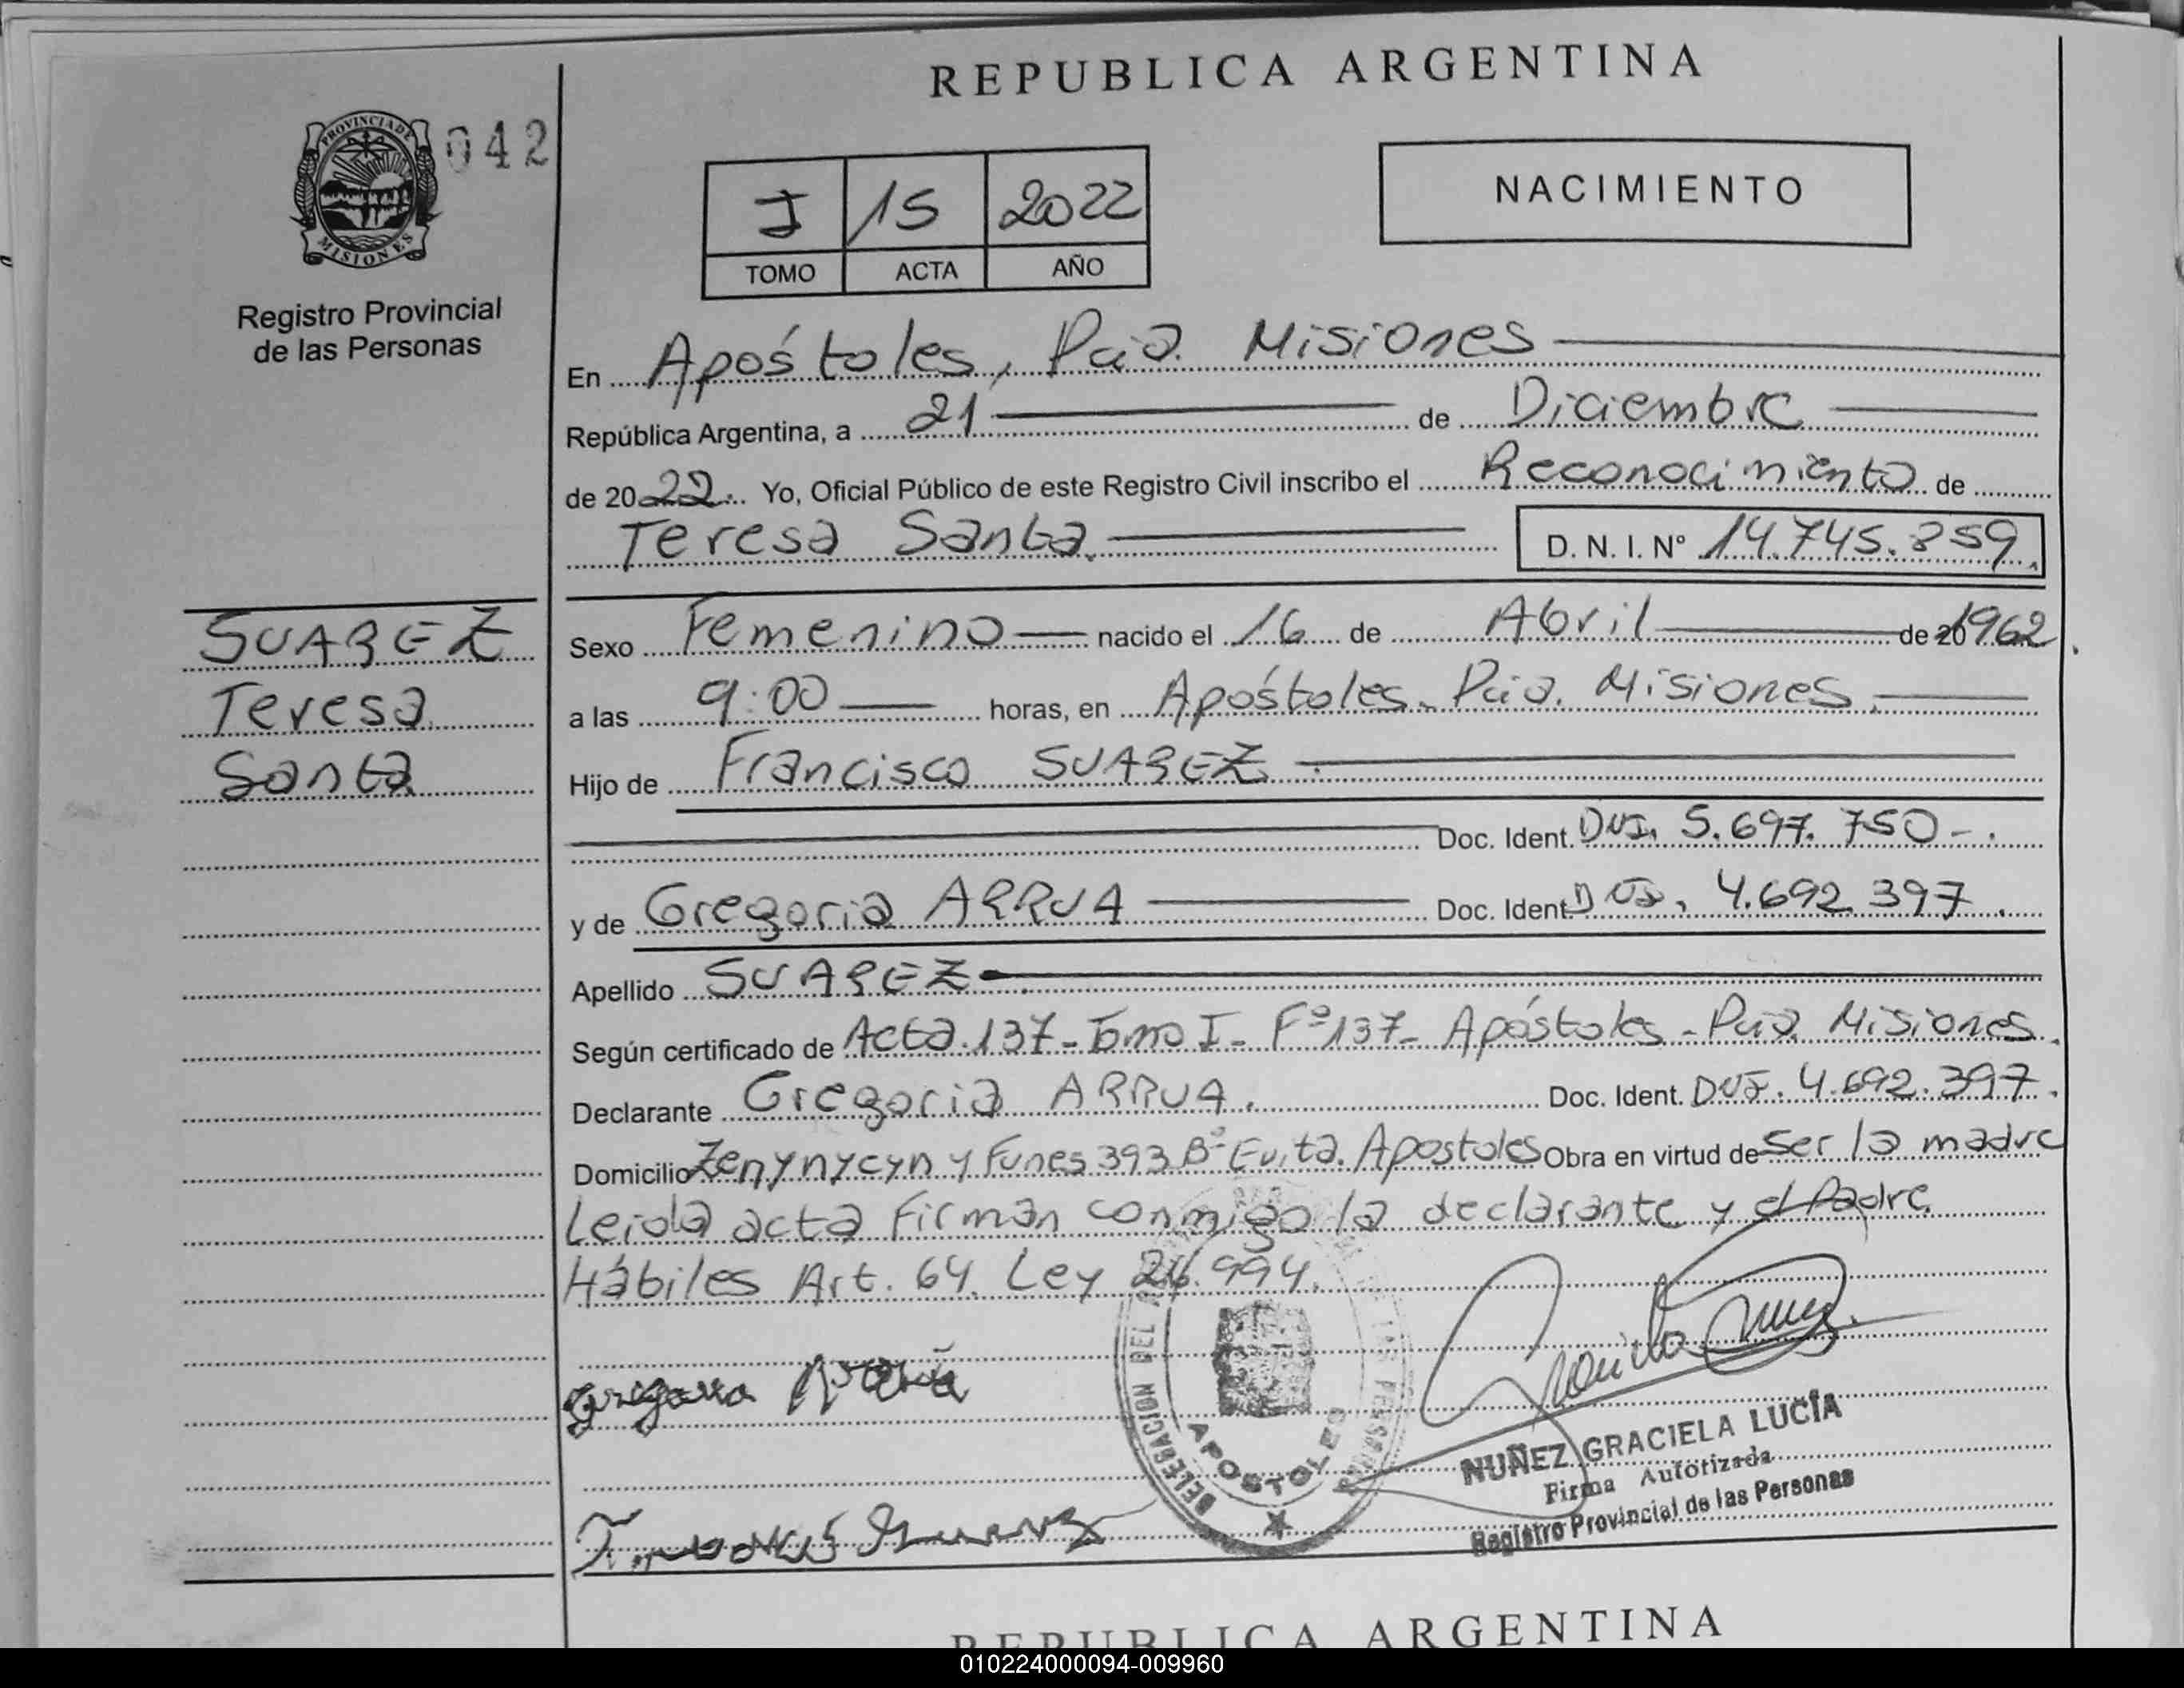 REPUBLICA ARGENTINA
PROVINCIA DE
MISIONES
042
Registro Provincial
de las Personas
I 15 2022
TOMO ACTA AÑO
NACIMIENTO
En Apóstoles, Pcia. Misiones
República Argentina, a 21 de Diciembre
de 2022. Yo, Oficial Público de este Registro Civil inscribo el Reconocimiento de
Teresa Santa. D. N. I. Nº 14.745.859.
SUAREZ
Teresa
Santa
Sexo Femenino nacido el 16 de Abril de 20 1962.
a las 9:00 horas, en Apóstoles. Pcia. Misiones.
Hijo de Francisco SUAREZ.
Doc. Ident. DNI. 5.697.750-.
y de Gregoria ARRUA Doc. Ident. DNI. 4.692.397.
Apellido SUAREZ-.
Según certificado de Acta.137-Tomo I- Fº137- Apóstoles-Pcia. Misiones.
Declarante Gregoria ARRUA. Doc. Ident. DNI. 4.692.397.
Domicilio Zenynycyn y Funes 393 Bº Evita. Apostoles Obra en virtud de ser la madre
Leida acta firman conmigo la declarante y el Padre
Hábiles Art. 64. Ley 26.994.
NUÑEZ GRACIELA LUCÍA
Firma Autorizada
Registro Provincial de las Personas
DELEGACION DEL
DE LAS PERSONAS
APOSTOLES
REPUBLICA ARGENTINA
010224000094-009960